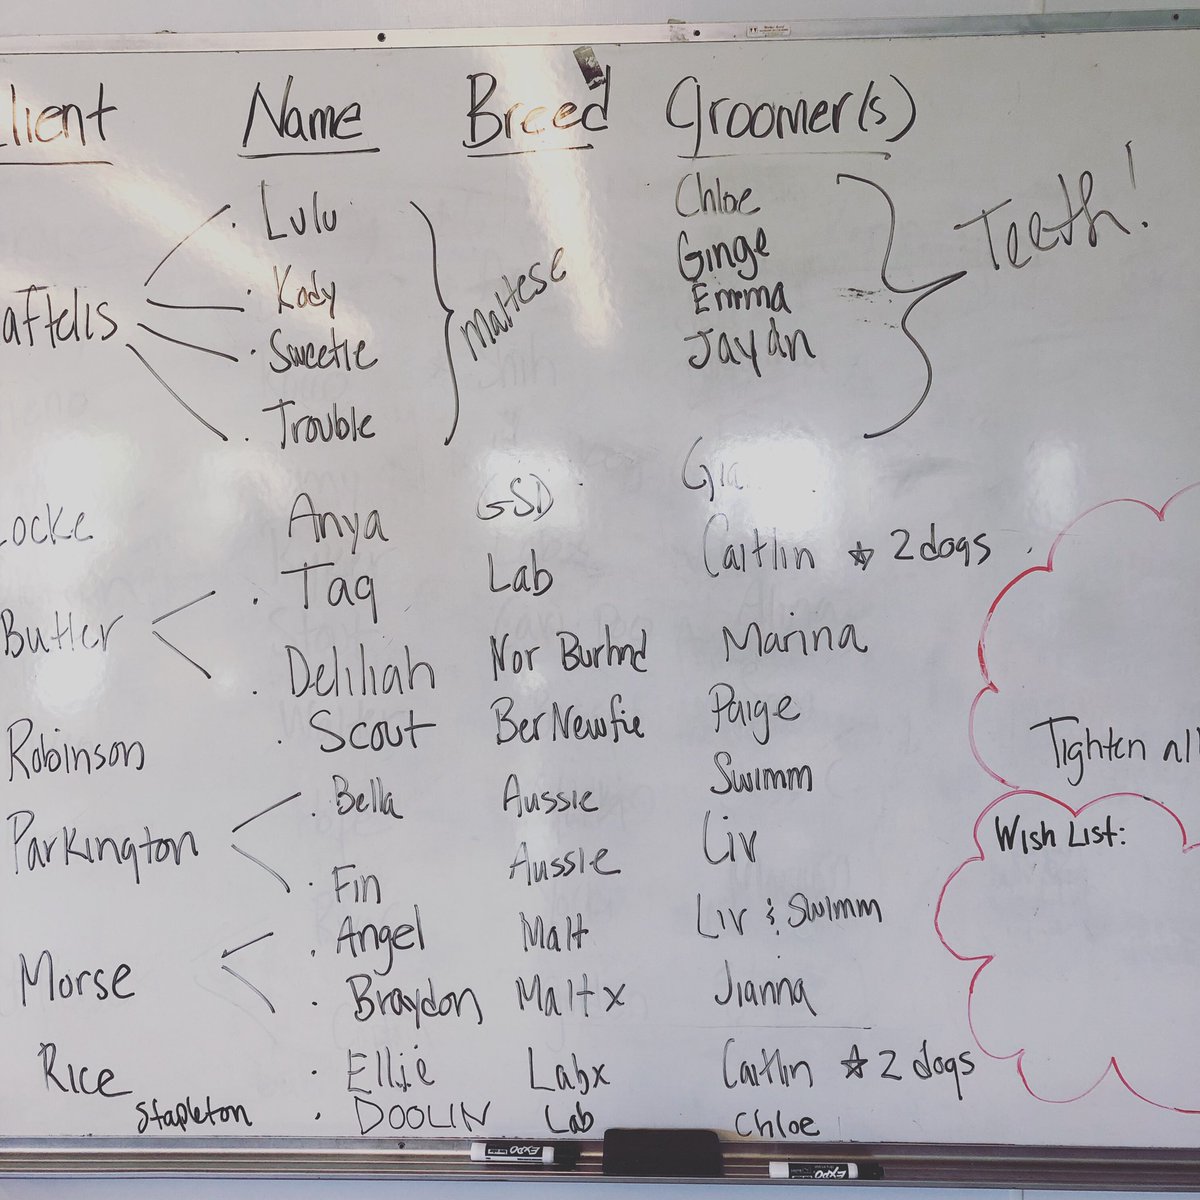 Client Name Breed Groomer(s)
Lulu Chloe
Kody Maltese Ginge Teeth!
aftelis Sweetie Emma
Trouble Jaydn
Locke Anya GSD Gia
Taq Lab Caitlin ☆ 2 dogs
Butler Deliliah Nor Burhnd Marina
Robinson Scout BerNewfie Paige
Tighten all
Bella Aussie Swimm
Parkington Fin Aussie Liv
Wish List:
Angel Malt Liv & Swimm
Morse Braydon Maltx Jianna
Rice Ellie Labx Caitlin ☆ 2 dogs
Stapleton DOOLIN Lab Chloe
EXPO
EXPO